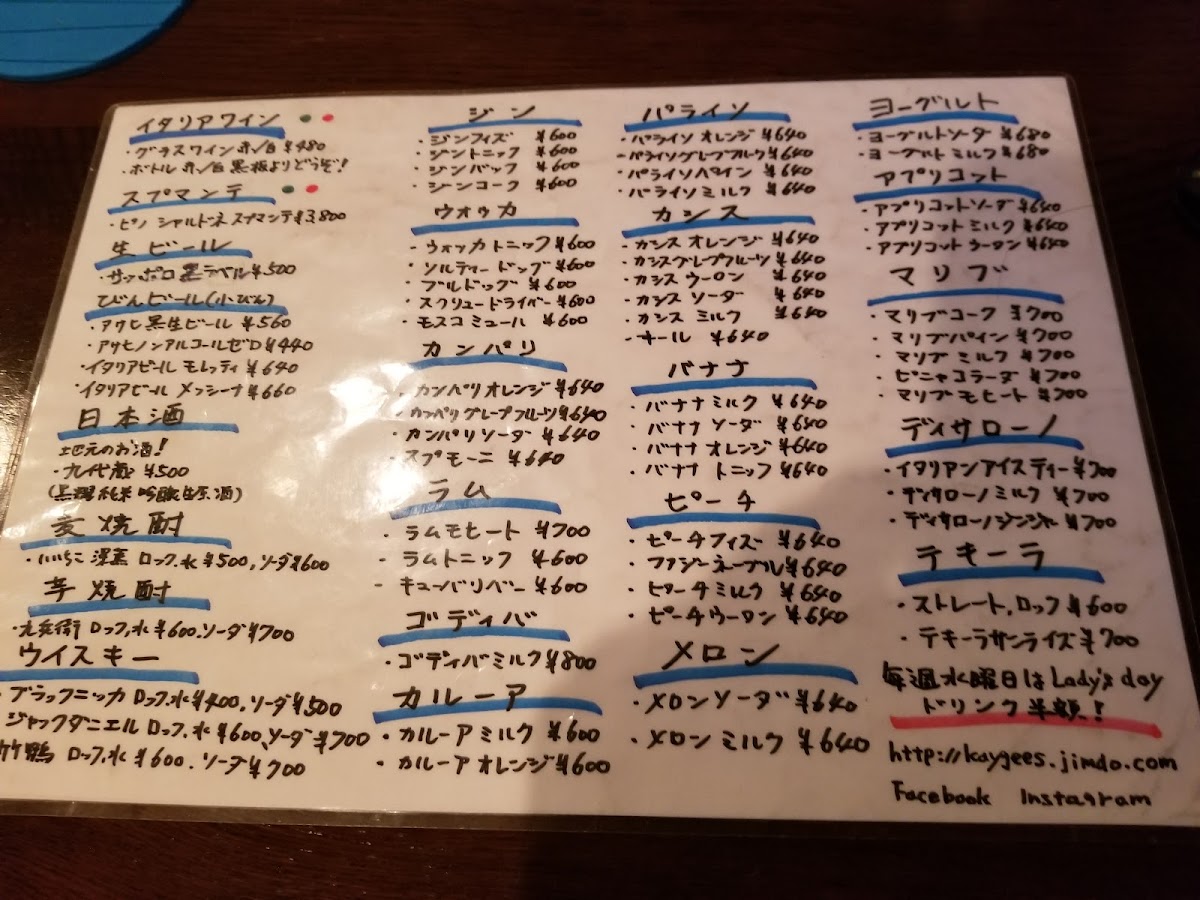 イタリアワイン
・グラスワイン 赤/白 ¥480
・ボトル 赤/白 黒板よりどうぞ!
スプマンテ
・ピノ シャルドネ スプマンテ ¥3,800
生ビール
・サッポロ 黒ラベル ¥500
びんビール(小びん)
・アサヒ 黒生ビール ¥560
・アサヒノンアルコールゼロ ¥440
・イタリアビール モレッティ ¥640
・イタリアビール メッシーナ ¥660
日本酒
地元のお酒!
・九代蔵 ¥500
純米吟醸生原酒)
麦焼酎
・いいちこ 深蒸 ロック,水 ¥500,ソーダ¥600
芋焼酎
ロック,水 ¥600.ソーダ¥700
ウイスキー
・ブラックニッカ ロック,水¥400,ソーダ¥500
ジャックダニエル ロック.水 ¥600、ソーダ¥700
竹鶴 ロック,水 ¥600.ソーダ¥700
ジン
・ジンフィズ ¥600
・ジントニック ¥600
・ジンバック ¥600
・ジンコーク ¥600
ウォッカ
・ウォッカトニック ¥600
・ソルティードッグ ¥600
・ブルドッグ ¥600
・スクリュードライバー ¥600
・モスコミュール ¥600
カンパリ
・カンパリオレンジ ¥640
・カンパリグレープフルーツ ¥640
・カンパリソーダ ¥640
・スプモーニ ¥640
ラム
・ラムモヒート ¥700
・ラムトニック ¥600
・キューバリバー ¥600
ゴディバ
・ゴディバミルク ¥800
カルーア
・カルーアミルク ¥600
・カルーアオレンジ ¥600
パライソ
・パライソオレンジ ¥640
・パライソグレプフルク ¥640
・パライソパイン ¥640
・パライソミルク ¥640
カシス
・カシスオレンジ ¥640
・カシスグレープフルーツ ¥640
・カシスウーロン ¥640
・カシスソーダ ¥640
・カシスミルク ¥640
・キール ¥640
バナナ
・バナナミルク ¥640
・バナナソーダ ¥640
・バナナオレンジ ¥640
・バナナトニック ¥640
ピーチ
・ピーチフィズ ¥640
・ファジーネーブル ¥640
・ピーチミルク ¥640
・ピーチウーロン ¥640
メロン
・メロンソーダ ¥640
・メロンミルク ¥640
ヨーグルト
・ヨーグルトソーダ ¥680
・ヨーグルトミルク ¥680
アプリコット
・アプリコットソーダ ¥640
・アプリコットミルク ¥640
・アプリコットウーロン ¥640
マリブ
・マリブコーク ¥700
・マリブパイン ¥700
・マリブミルク ¥700
・ピニャコラーダ ¥700
・マリブモヒート ¥700
ディサローノ
・イタリアンアイスティー ¥700
・ディサローノミルク ¥700
・ディサローノジンジャー ¥700
テキーラ
・ストレート,ロック ¥600
・テキーラサンライズ ¥700
毎週水曜日はLady's day
ドリンク半額!
http://kaygees.jimdo.com
Facebook Instagram